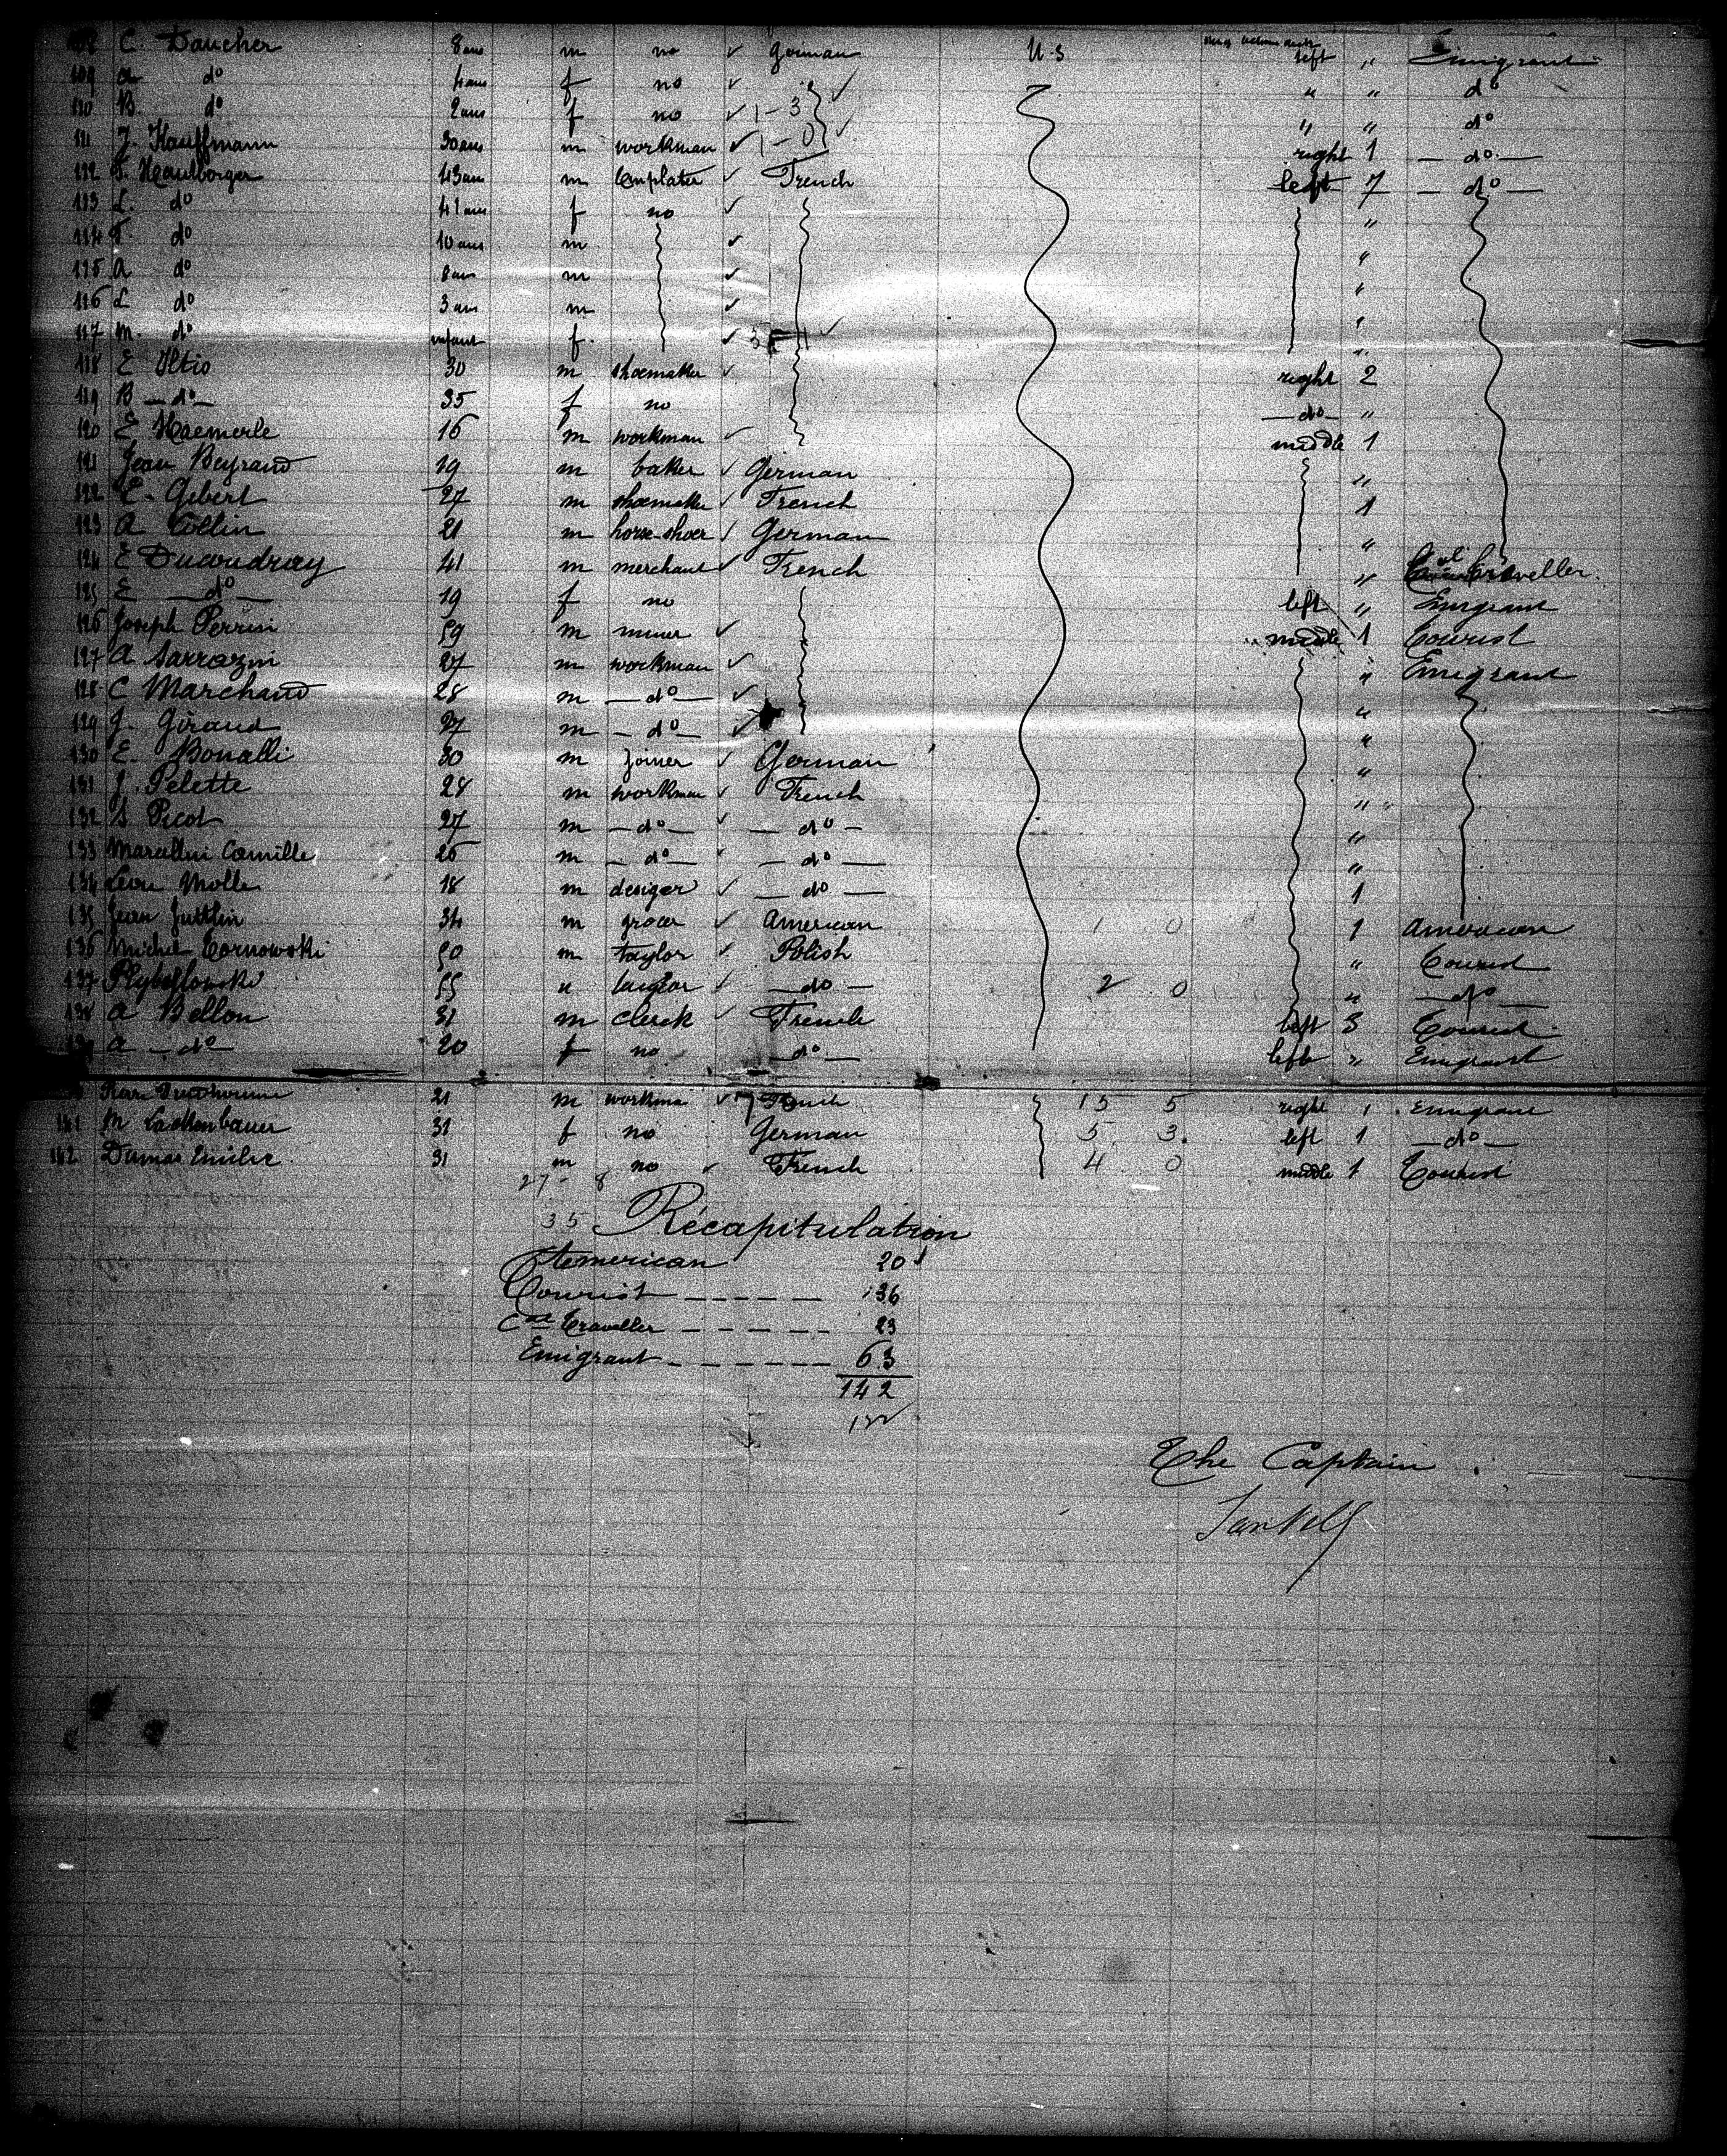 C. Daucher 8 ans m no ✓ German U.S left " Emigrant
109 a do 4 ans f no ✓ " " do
110 B. do 2 ans f no ✓ 1-3 ✓ " " do
111 J. Kauffmann 30 ans m workman ✓ 1-0 ✓ right 1 — do —
112 F. Haulborger 43 ans m ✓ French left 7 — do —
113 L. do 41 ans f no ✓ "
114 F. do 10 ans m ✓ "
115 A do 8 ans m ✓ "
116 L do 3 ans m ✓ "
117 M. do infant f. ✓ 3 ✓ "
118 E Iltis 30 m shoemaker ✓ right 2
119 B — do — 35 f no — do — "
120 E Haemerle 16 m workman ✓ middle 1
121 Jean Beyrand 19 m baker ✓ German "
122 E. Gebert 27 m shoemaker ✓ French 1
123 A Collin 21 m horse-shoer ✓ German "
124 E Ducoudray 41 m merchant ✓ French " Traveller.
125 E — do — 19 f no left " Emigrant
126 Joseph Perrin 59 m miner ✓ middle 1 Tourist
127 A Sarrazin 27 m workman ✓ " Emigrant
128 C Marchand 28 m — do — ✓ "
129 J. Giraud 27 m — do — ✓ "
130 E. Bonalli 30 m joiner ✓ German "
131 J. Pelette 28 m workman ✓ French "
132 S Picot 27 m — do — ✓ — do — "
133 Marallini Camille 26 m — do — ✓ — do — "
134 Léon Molle 18 m desiger ✓ — do — 1
135 Jean Juttlin 34 m grocer ✓ American 1 0 1 American
136 Michel Cornowski 50 m taylor ✓ Polish " Tourist
137 55 " taylor ✓ — do — 2 0 " — do —
138 A Bellon 31 m clerck ✓ French left 3 Tourist
A — do — 20 f no — do — left " Emigrant
21 m workman ✓ French 15 5 right 1 Emigrant
141 M Lachenbauer 31 f no German 5 3. left 1 — do —
142 Dumas Emilie 31 m no ✓ French 4 0 middle 1 Tourist
27 - 8
35 Récapitulation
American 20
Tourist — — — — — 36
Cal Traveller — — — — — 23
Emigrant — — — — — — 63
142
The Captain